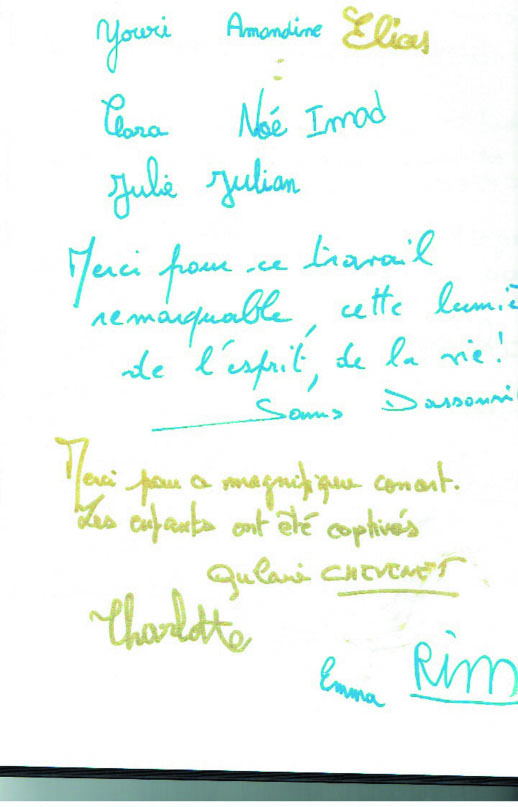 Youri Amandine Elias
Clara Noé Imad
Julie Julian
Merci pour ce travail
remarquable, cette lumiè
de l'esprit, de la vie !
Merci pour ce magnifique concert.
Les enfants ont été captivés
CHEVENET
Charlotte
Emma Rim